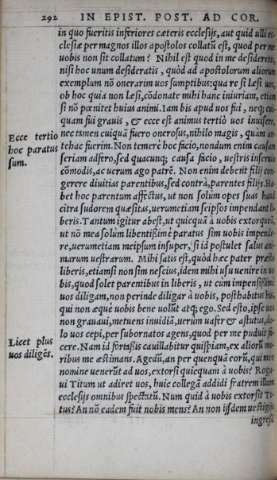 292 IN EPIST. POST. AD COR.
in quo fueritis inferiores cæteris ecclesijs, aut quid illi ec
clesiæ per magnos illos apostolos collatũ est, quod per me
uobis non sit collatum? Nihil est quod in me desideretis,
nisi hoc unum desideratis, quòd ad apostolorum aliorum
exemplum nõ onerarim uos sumptibus: qua re si læsi uos,
ob hoc quia non læsi, cõdonate mihi hanc iniuriam, etiam
si nõ pœnitet huius animi. Iam bis apud uos fui, neq; cui
quam fui grauis, & ecce est animus tertiò uos inuisere,
Ecce tertio nec tamen cuiquã fuero onerosus, nihilo magis, quàm an
hoc paratus tehac fuerim. Non temerè hoc facio, nondum enim causam
sum. seriam adfero, sed quacunq; causa facio, uestris inseruio
cõmodis, ac uerum ago patrẽ. Non enim debent filij con
gerere diuitias parentibus, sed contrà, parentes filijs. Ha
bet hoc parentum affectus, ut non solum opes suas haud
citra sudorem quæsitas, uerumetiam seipsos impendant li
beris. Tantum igitur abest, ut quicquã à uobis extorqueã,
ut nõ mea solum libentissimè paratus sim uobis impende
re, uerumetiam meipsum insuper, si id postulet salus ani
marum uestrarum. Mihi satis est, quòd hæc pater præsto
liberis, etiamsi non sim nescius, idem mihi usu uenire in uo
bis, quod solet parentibus in liberis, ut cum impensissimè
uos diligam, non perinde diligar à uobis, posthabitus his,
qui non æquè uobis bene uolũt atq; ego. Sed esto, ipse uos
non grauaui, metuens inuidiã, uerum uafer & astutus, do
lo uos cepi, per subornatos agens, quod per me puduit fa
Licet plus cere. Nam id fortassis cauillabitur quispiam, ex aliorũ mo
uos diligẽs. ribus me æstimans. Agedũ, an per quenquã eorũ, qui meo
nomine uenerũt ad uos, extorsi quicquam à uobis? Roga
ui Titum ut adiret uos, huic collegã addidi fratrem illum
ecclesijs omnibus spectatũ. Num quid à uobis extorsit Ti
tus? An nõ eadem fuit nobis mens? An non ijsdem uestigijs
ingressi